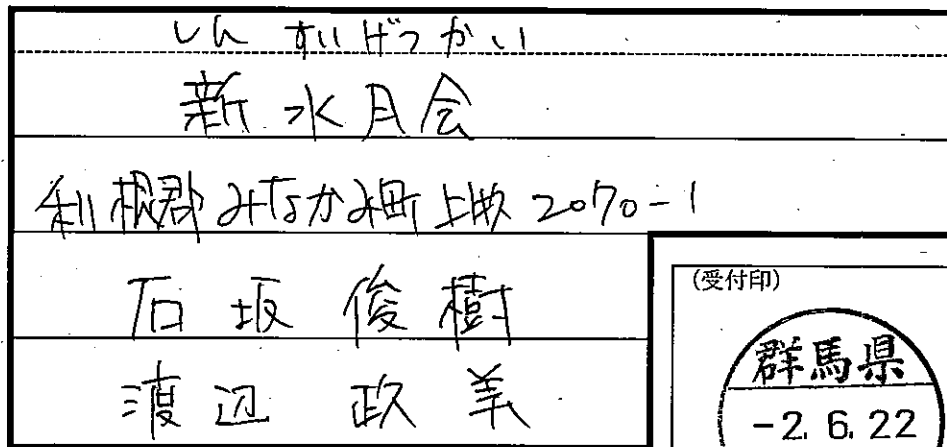 しんすいげつかい
新水月会
利根郡みなかみ町上牧2070-1
石坂俊樹
渡辺政美
(受付印)
群馬県
-2.6.22